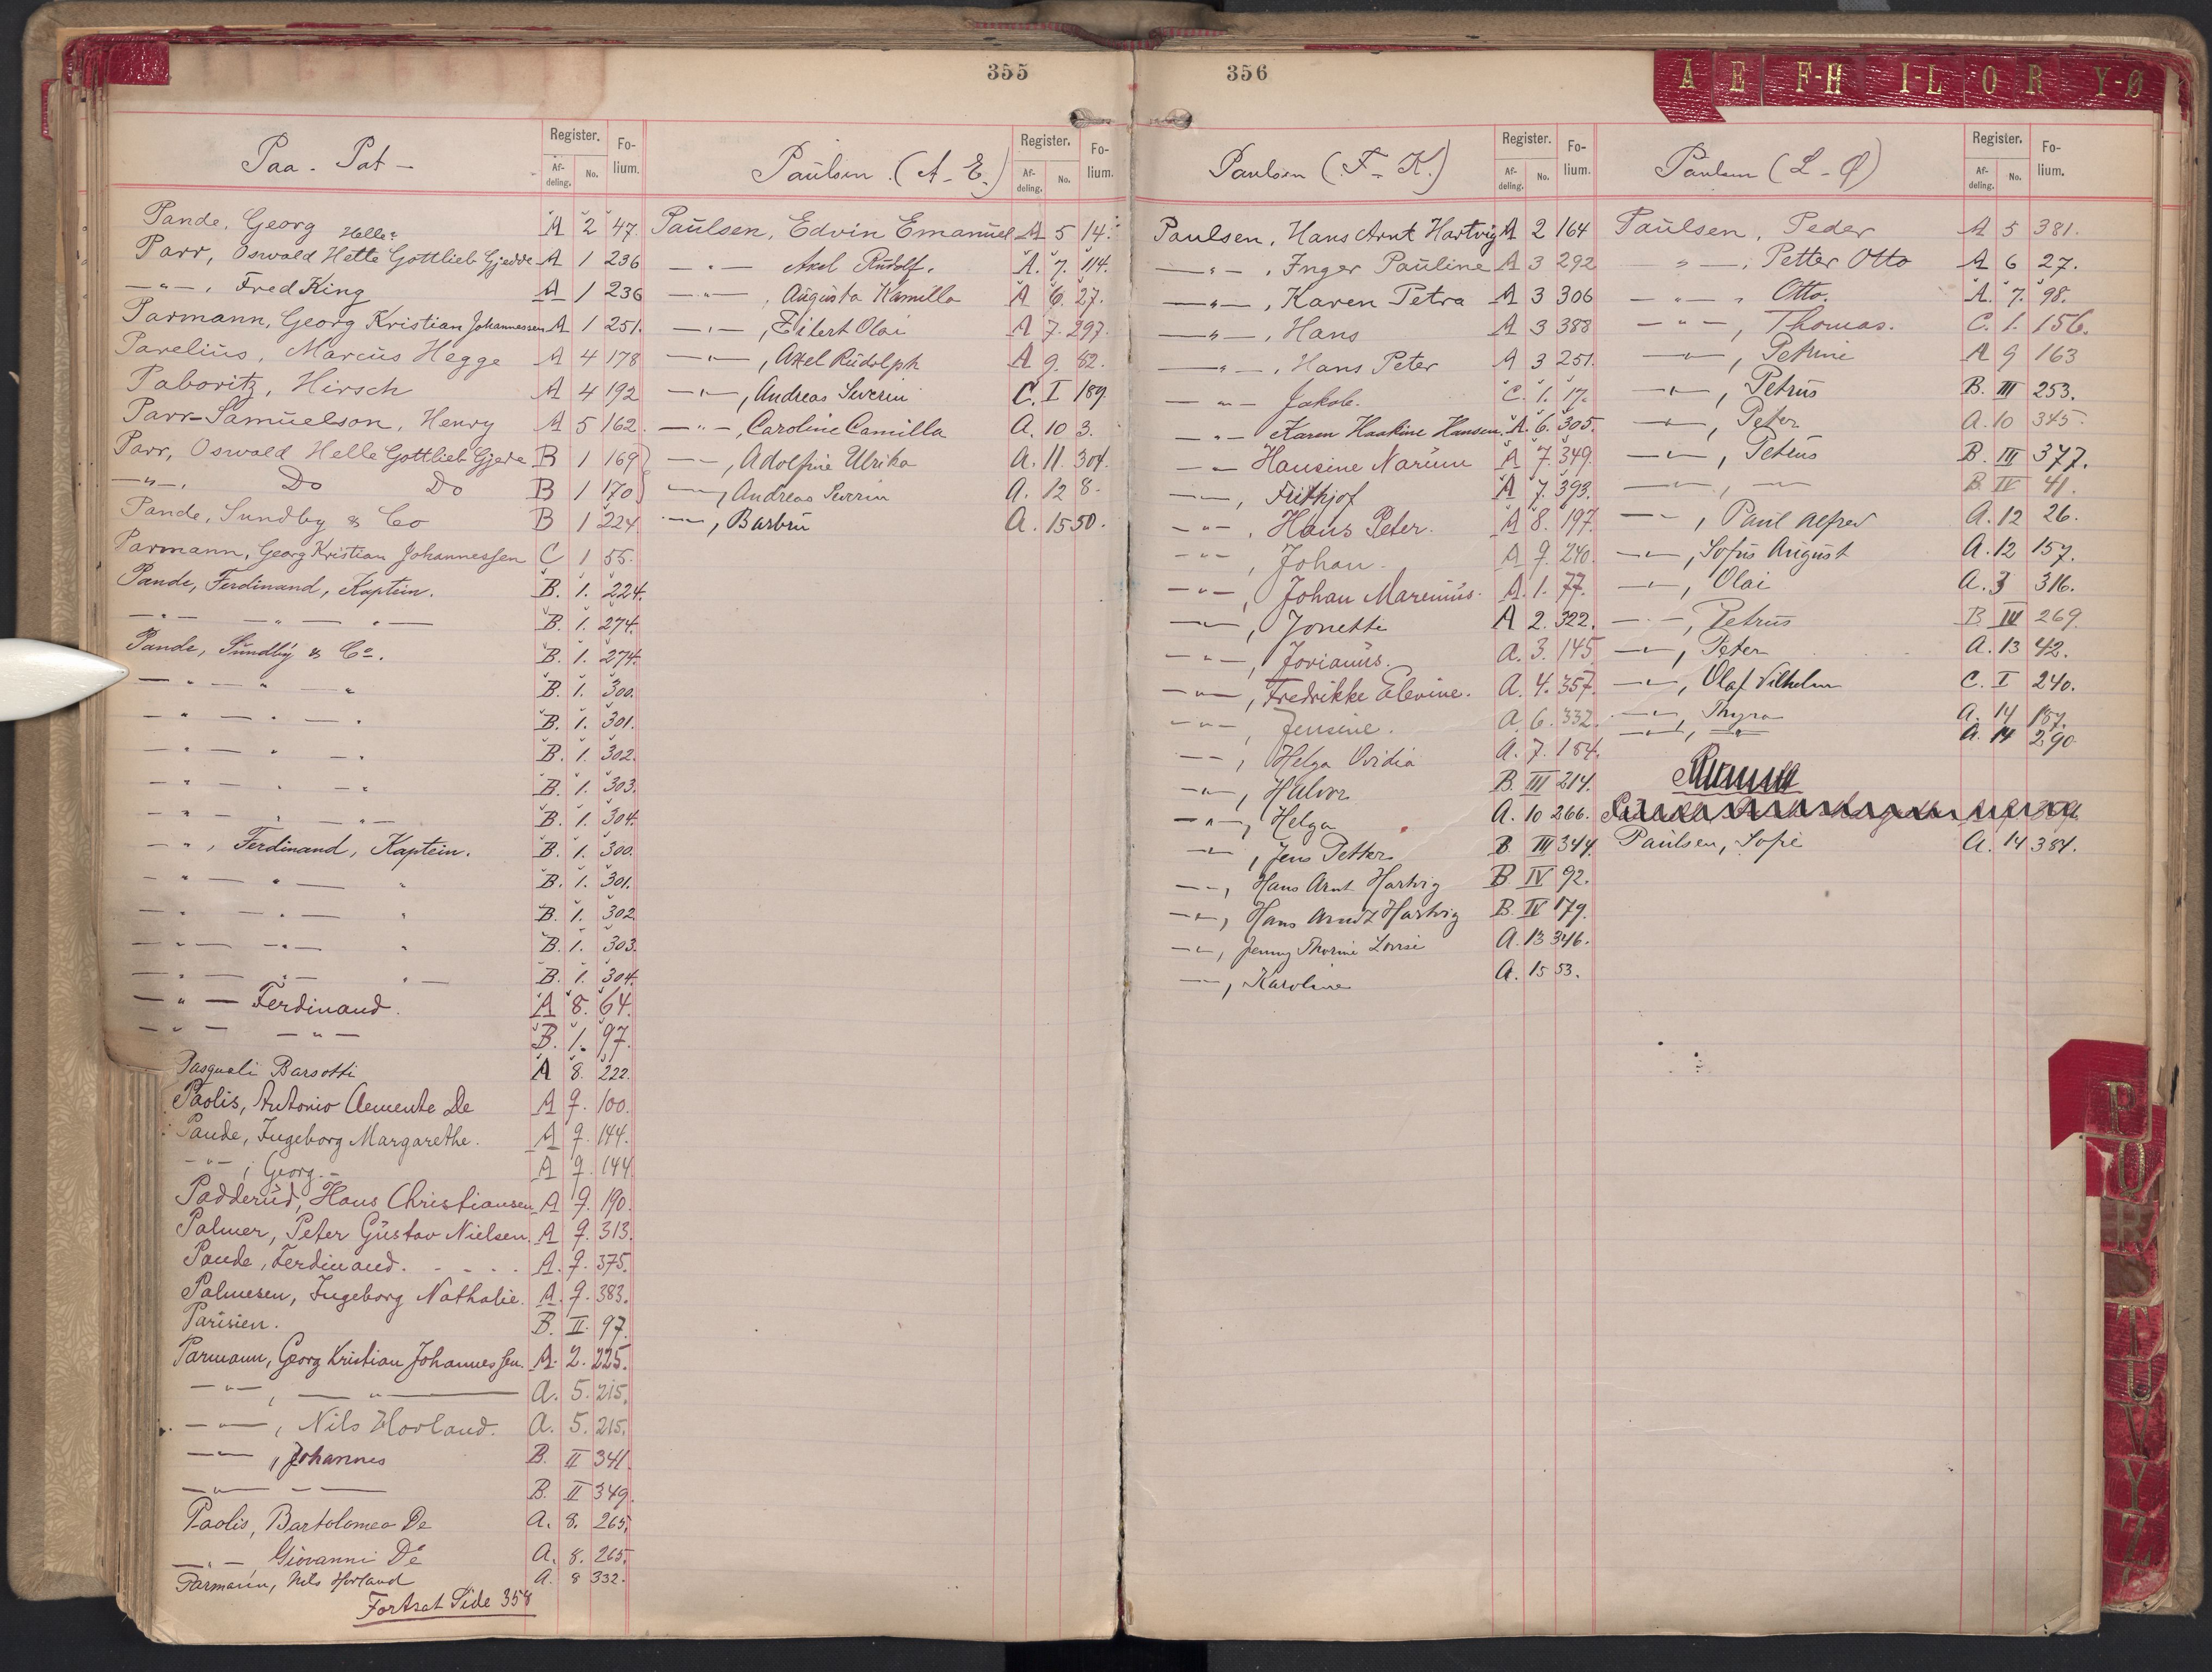 355
Paa - Pat -
Register. Fo-
Af- No. lium.
deling.
Pande, Georg A 2 47.
Helle
Parr, Oswald Helle Gottlieb Gjedde A 1 236
— " — , Fred King A 1 236
Parmann, Georg Kristian Johannessen A 1 251.
Parelius, Marcus Hegge A 4 178
Paboritz, Hirsch A 4 192
Parr-Samuelson, Henry A 5 162.
Parr, Oswald Helle Gottlieb Gjede B 1 169
— " — . Do Do B 1 170
Pande, Sundby & Co B 1 224
Parmann, Georg Kristian Johannessen C 1 55.
Pande, Ferdinand, Kaptein. B. 1. 224.
— " — — " — — " — B. 1. 274.
Pande, Sundby & Co. B. 1. 274.
— " — " — " B. 1. 300.
— " — " — " B. 1. 301.
— " — " — " B. 1. 302.
— " — " — " B. 1. 303.
— " — " — " — B. 1. 304.
— " , Ferdinand, Kaptein. B. 1. 300.
— " — " — " B. 1. 301.
— " — " — " B. 1. 302.
— " — " — " B. 1. 303.
— " — " — " — B. 1. 304.
— " — Ferdinand. A 8. 64.
— " — — " — B. 1. 97.
Pasquali Barsotti A 8. 222.
Paolis, Antonio Clemente De A 9. 100.
Pande, Ingeborg Margarethe. A 9. 144.
— " — , Georg. — A 9. 144
Padderud, Hans Christiansen A 9. 190.
Palmer, Peter Gustav Nielsen. A 9. 313.
Pande, Ferdinand. . . . . A. 9. 375.
Palmesen, Ingeborg Nathalie. A. 9. 383.
Parisien. B. II. 97.
Parmann, Georg Kristian Johannessen. A. 2. 225.
— " — , — " — A. 5. 215.
— " — , Nils Horland. A. 5. 215.
— " — , Johannes B. II 341.
— " — — — B. II 349.
Paolis, Bartolomeo De A. 8. 265.
— " — Giovanni De A. 8. 265.
Parmann, Nils Horland A. 8 332.
Fortsat Side 358
Paulsen. (A - E.)
Register. Fo-
Af- No. lium.
deling.
Paulsen, Edvin Emanuel A 5 14.
— " — Axel Rudolf. A. 7. 114.
— " — , Augusta Kamilla A 6. 27.
— " — , Eilert Olai A 7. 297.
— " — , Axel Rudolph A 9. 82.
— " — , Andreas Severin C. I 189
— " — , Caroline Camilla A. 10 3.
— " — , Adolfine Ulrika A. 11. 304.
— " — , Andreas Severin A. 12 8.
— " — , Barbru A. 15 50.
356
A E F-H I-L O R Y-Ø
Paulsen (F - K.)
Register. Fo-
Af- No. lium.
deling.
Paulsen, Hans Arnt Hartvig A 2 164
— " — , Inger Pauline A 3 292
— " — , Karen Petra A 3 306
— " — , Hans A 3 388
— " — , Hans Peter A 3 251.
— " — Jakob. C. 1. 17.
— " — Karen Haakine Hansen. A. 6. 305.
— " — Hansine Narum A 7. 349.
— " — , Frithjof A 7. 393.
— " — , Hans Peter. A 8. 197.
— " — , Johan. A 9. 240.
— " — , Johan Marenius. A. 1. 77.
— " — , Jonette A 2. 322.
— " — , Jovianus. A. 3. 145
— " — , Fredrikke Elevine. A. 4. 357.
— " — , Jensine. A. 6. 332.
— " — , Helga Ovidia A. 7. 184.
— " — , Halvor B. III 214.
— " — , Helga A. 10 266.
— " — , Jens Petter B. III 344.
— " — , Hans Arnt Hartvig B IV 92.
— " — , Hans Arndt Hartvig B. IV 179.
— " — , Jenny Thorine Lovise A. 13 346.
— " — , Karoline A. 15 53.
Paulsen (L - Ø)
Register. Fo-
Af- No. lium.
deling.
Paulsen, Peder A 5 381.
— " — , Petter Otto A 6 27.
— " — , Otto. A. 7. 98.
— " — , Thomas. C. 1. 156.
— " — , Petrine A 9 163
— " — , Petrus B. III 253.
— " — , Peter A. 10 345.
— " — , Petrus B. III 377.
— " — , — " — B. IV 41.
— " — , Paul Alfred A. 12 26.
— " — , Sofus August A. 12 157.
— " — , Olai A. 3 316.
— " — , Petrus B. IV 269.
— " — , Peter A. 13 42.
— " — , Olaf Vilhelm C. I 240.
— " — , Thyra A. 14 157.
— " — , — " — A. 14 290.
Paulsen, Sofie A. 14 384.
P
O
R
S
T
U
V
Y
Z